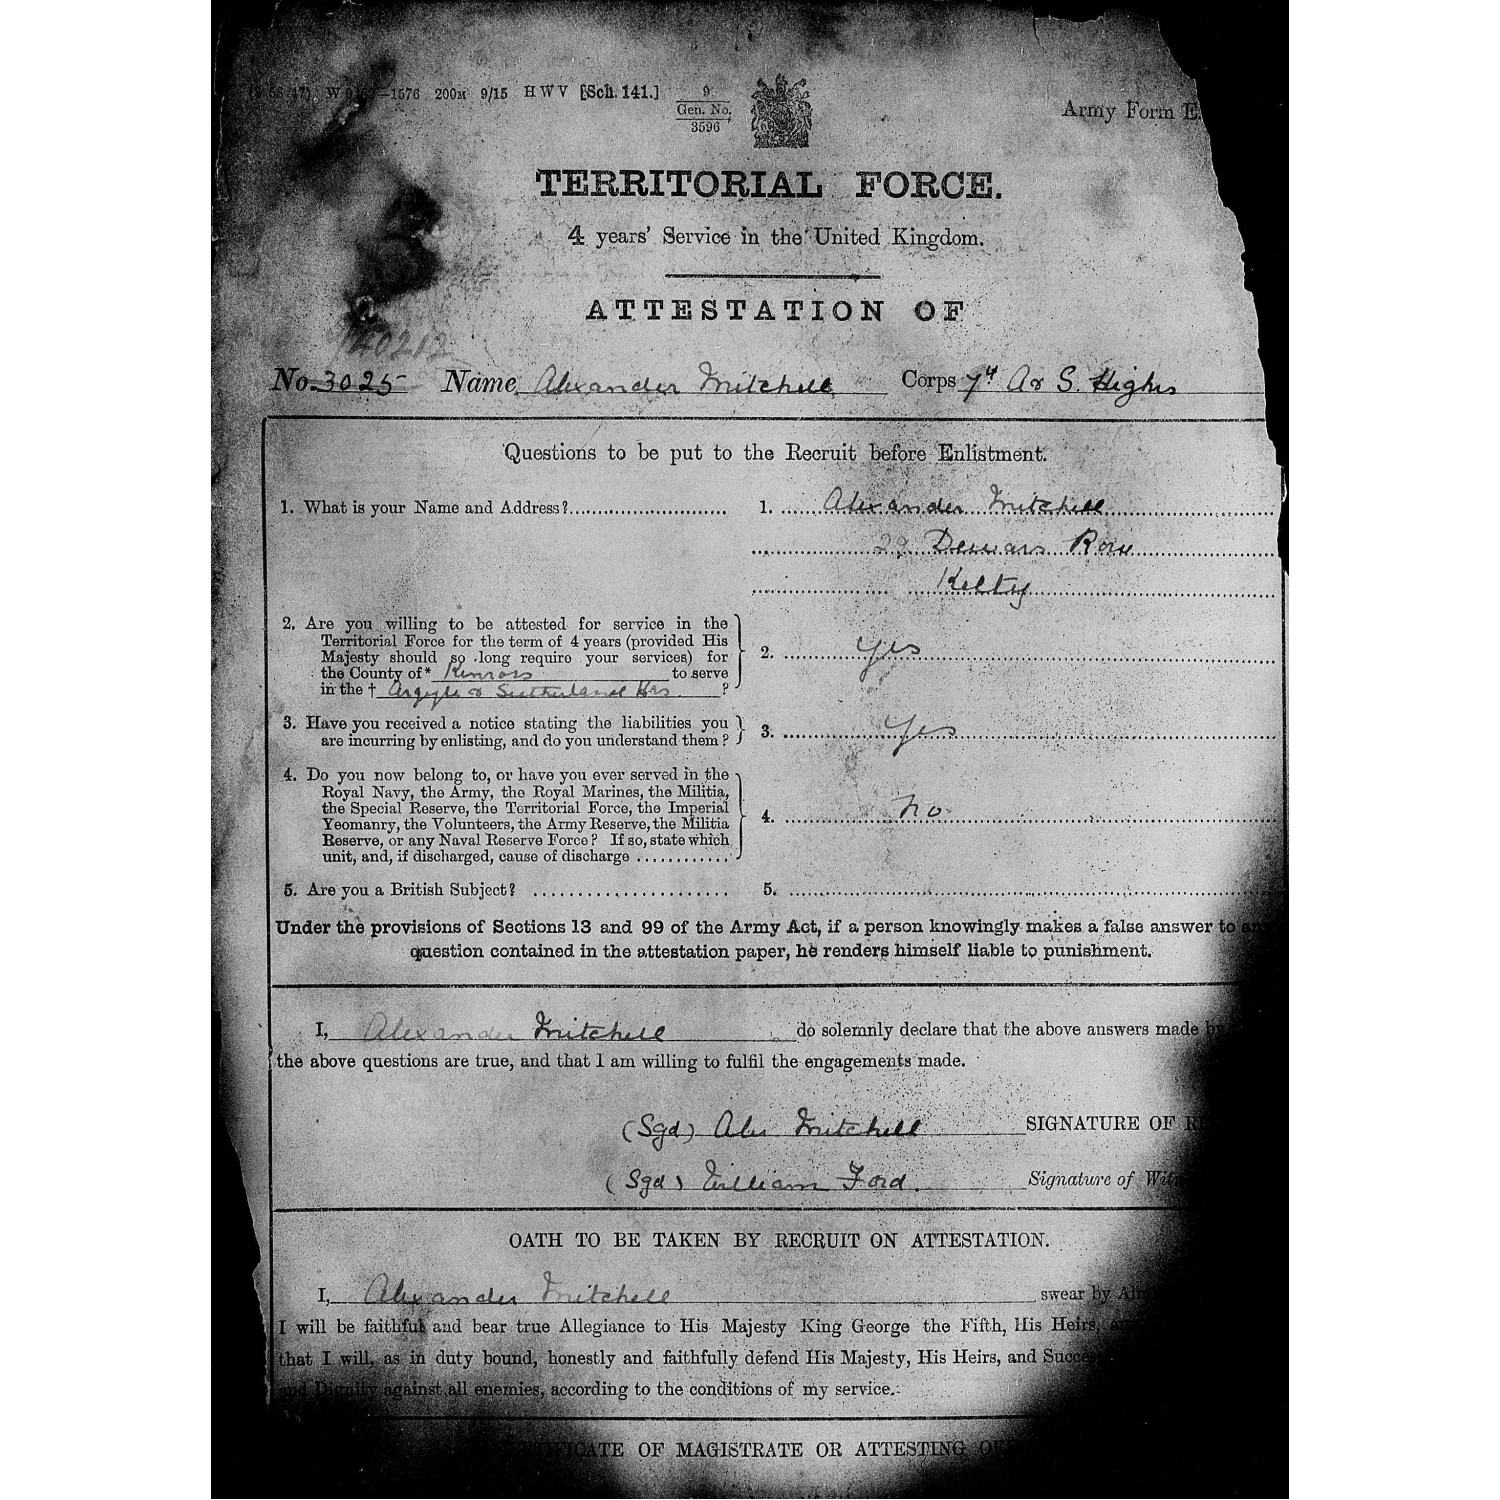 1576 200M 9/15 H W V [Sch. 141.]
9
Gen. No.
3596
Army Form E.
TERRITORIAL FORCE.
4 years' Service in the United Kingdom.
ATTESTATION OF
No. 3025 Name Alexander Mitchell Corps 7th A & S. Highrs
Questions to be put to the Recruit before Enlistment.
1. What is your Name and Address? 1. Alexander Mitchell
29 Dewars Row
Kelty
2. Are you willing to be attested for service in the
Territorial Force for the term of 4 years (provided His
Majesty should so long require your services) for
the County of* Kinross to serve
in the † Argyle & Sutherland Hrs ?
2. Yes
3. Have you received a notice stating the liabilities you
are incurring by enlisting, and do you understand them?
3. Yes
4. Do you now belong to, or have you ever served in the
Royal Navy, the Army, the Royal Marines, the Militia,
the Special Reserve, the Territorial Force, the Imperial
Yeomanry, the Volunteers, the Army Reserve, the Militia
Reserve, or any Naval Reserve Force? If so, state which
unit, and, if discharged, cause of discharge
4. No
5. Are you a British Subject? 5.
Under the provisions of Sections 13 and 99 of the Army Act, if a person knowingly makes a false answer to
question contained in the attestation paper, he renders himself liable to punishment.
I, Alexander Mitchell do solemnly declare that the above answers made by
the above questions are true, and that I am willing to fulfil the engagements made.
(Sgd) Alex Mitchell SIGNATURE OF
(Sgd) William Ford. Signature of
OATH TO BE TAKEN BY RECRUIT ON ATTESTATION.
I, Alexander Mitchell swear by
I will be faithful and bear true Allegiance to His Majesty King George the Fifth, His Heirs,
that I will, as in duty bound, honestly and faithfully defend His Majesty, His Heirs, and
and Dignity against all enemies, according to the conditions of my service.
OF MAGISTRATE OR ATTESTING